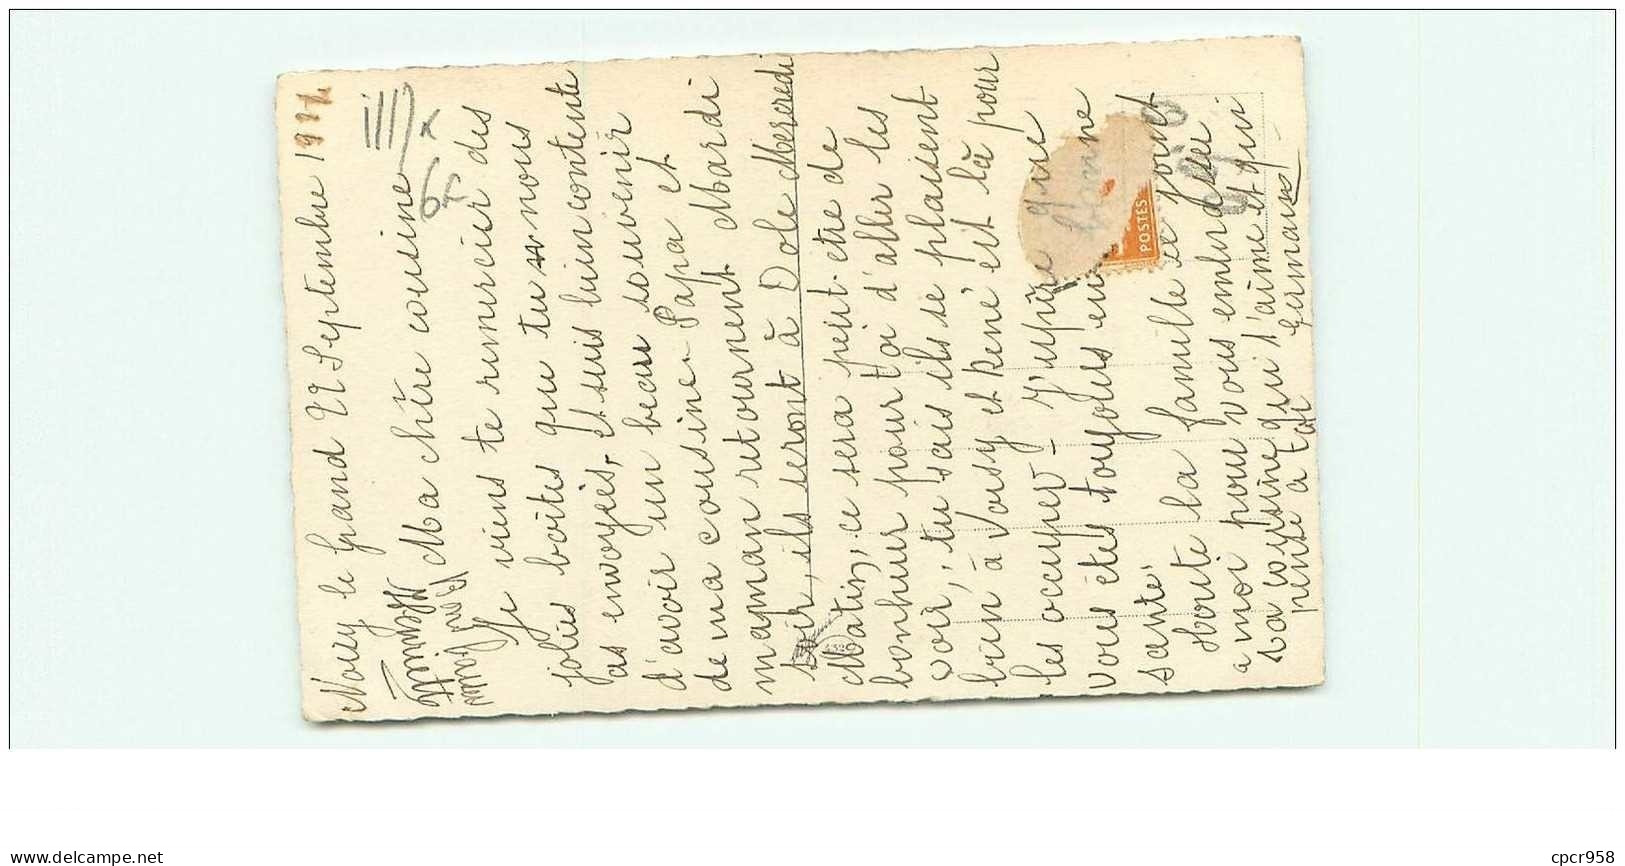 Noiry le Grand 22 Septembre 1927
Ma chère cousine
Je viens te remercier des
jolies boites que tu nous
as envoyés, et suis bien contente
d'avoir un beau souvenir
de ma cousine. Papa et
maman retournent Mardi
soir, ils seront à Dole Mercredi
Matin, ce sera peut-etre de
bonheur pour toi d'aller les
voir, tu sais ils se plaisent
bien à Voisy et René est là pour
les occuper_ J'espère que
vous êtes toujours en bonne
santé.
toute la famille se joint
a moi pour vous embrasser
ta cousine qui t'aime et qui
pense a toi
Germaine
6f
POSTES
cpcr958